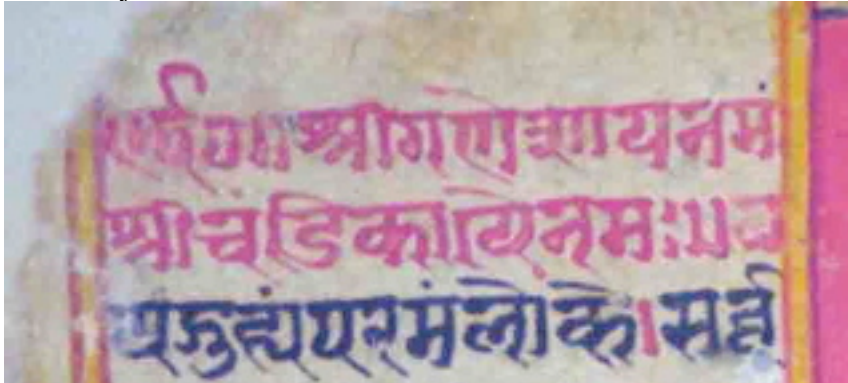 श्रीगणेशायनमः
श्रीचंडिकायैनमः॥
गुह्यंपरमंलोके।सर्व